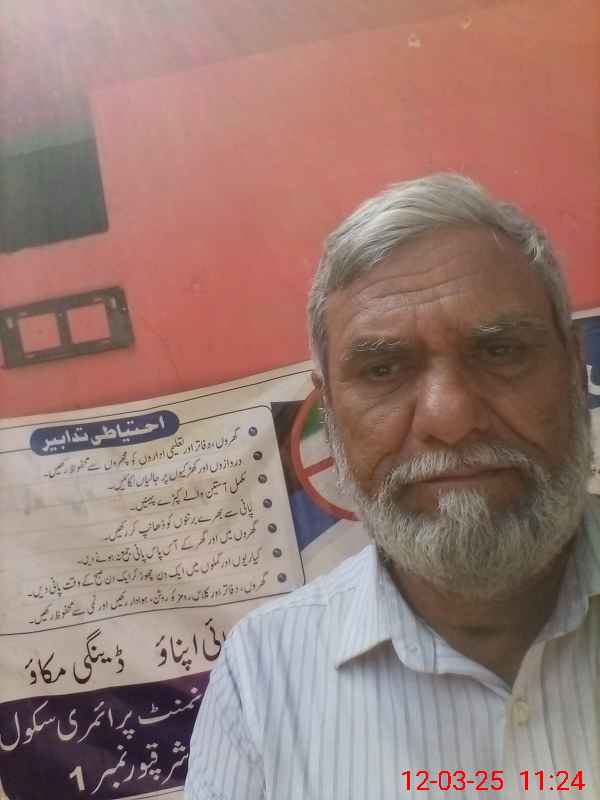 احتیاطی تدابیر
گھروں، دفاتر اور تعلیمی اداروں کو مچھروں سے محفوظ رکھیں۔
دروازوں اور کھڑکیوں پر جالیاں لگائیں۔
مکمل آستین والے کپڑے پہنیں۔
پانی سے بھرے برتنوں کو ڈھانپ کر رکھیں۔
گھروں میں اور گھر کے آس پاس پانی جمع نہ ہونے دیں۔
کیاریوں اور گملوں میں ایک دن چھوڑ کر ایک دن صبح کے وقت پانی دیں۔
گھروں، دفاتر اور کلاس رومز کو روشن، ہوادار رکھیں اور نمی سے محفوظ رکھیں۔
ائی اپناؤ ڈینگی مکاؤ
نمنٹ پرائمری سکول
شرقپور نمبر 1
12-03-25 11:24